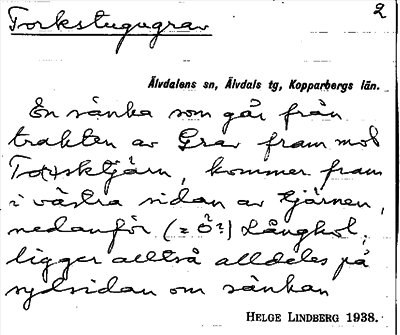 Torkstugugrav
2
Älvdalens sn, Älvdals tg, Kopparbergs län.
En sänka som går från
trakten av Grav fram mot
Torsktjärn, kommer fram
i västra sidan av tjärnen,
nedanför (= Ö?) Långhol,
ligger alltså alldeles på
sydsidan om sänkan
HELGE LINDBERG 1938.